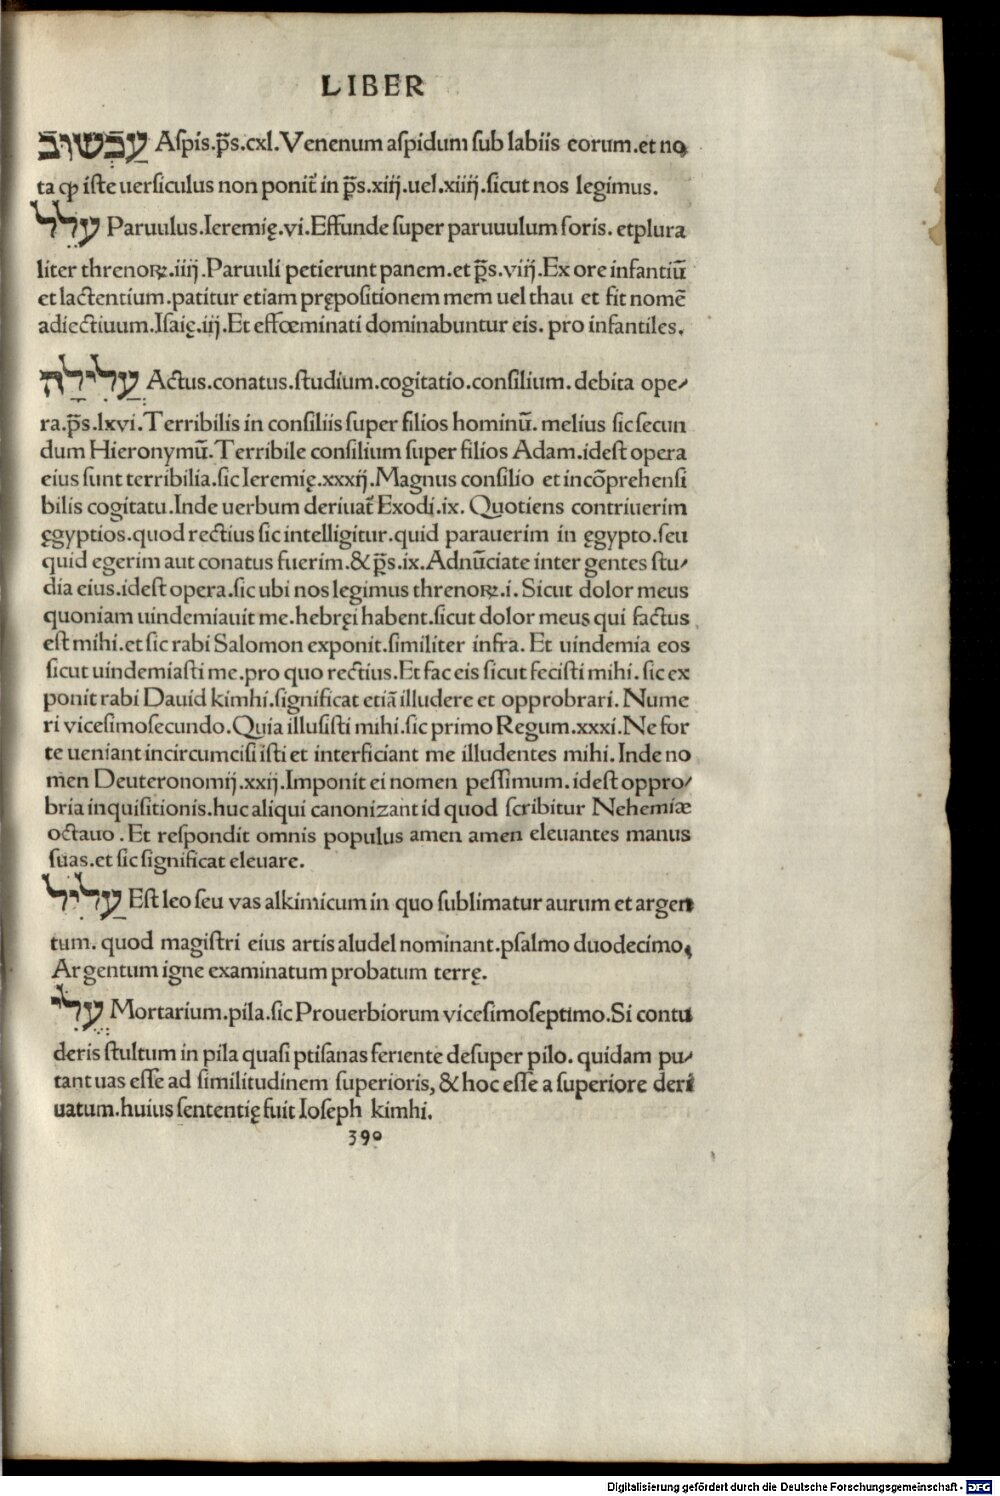 LIBER
עַכְשׁוּב Aſpis.p̃s.cxl.Venenum aſpidum ſub labiis eorum.et no
ta ꝙ iſte uerſiculus non ponit᷑ in p̃s.xiij.uel.xiiij.ſicut nos legimus.
עֹלֵל Paruulus.Ieremię.vi.Effunde ſuper paruuulum foris. etplura
liter threnoꝝ.iiij.Paruuli petierunt panem.et p̃s.viij.Ex ore infantiũ
et lactentium.patitur etiam prępoſitionem mem uel thau et fit nomẽ
adiectiuum.Iſaię.iij.Et effœminati dominabuntur eis. pro infantiles.
עֲלִילָה Actus.conatus.ſtudium.cogitatio.conſilium.debita ope⸗
ra.p̃s.lxvi.Terribilis in conſiliis ſuper filios hominũ. melius ſic ſecun
dum Hieronymũ.Terribile conſilium ſuper filios Adam.ideſt opera
eius ſunt terribilia.ſic Ieremię.xxxij.Magnus conſilio et incõprehenſi
bilis cogitatu.Inde uerbum deriuat᷑ Exodi.ix. Quotiens contriuerim
ęgyptios.quod rectius ſic intelligitur.quid parauerim in ęgypto.ſeu
quid egerim aut conatus fuerim.&p̃s.ix.Adnũciate inter gentes ſtu⸗
dia eius.ideſt opera.ſic ubi nos legimus threnoꝝ.i. Sicut dolor meus
quoniam uindemiauit me.hebręi habent.ſicut dolor meus qui factus
eſt mihi.et ſic rabi Salomon exponit.ſimiliter infra. Et uindemia eos
ſicut uindemiaſti me.pro quo rectius.Et fac eis ſicut feciſti mihi. ſic ex
ponit rabi Dauid kimhi.ſignificat etiã illudere et opprobrari. Nume
ri viceſimoſecundo.Quia illuſiſti mihi.ſic primo Regum.xxxi.Ne for
te ueniant incircumciſi iſti et interficiant me illudentes mihi. Inde no
men Deuteronomij.xxij.Imponit ei nomen peſſimum.ideſt oppro⸗
bria inquiſitionis.huc aliqui canonizant id quod ſcribitur Nehemiæ
octauo.Et reſpondit omnis populus amen amen eleuantes manus
ſuas.et ſic ſignificat eleuare.
עֲלִיל Eſt leo ſeu vas alkimicum in quo ſublimatur aurum et argen
tum. quod magiſtri eius artis aludel nominant.pſalmo duodecimo,
Argentum igne examinatum probatum terrę.
עֱלִי Mortarium.pila.ſic Prouerbiorum viceſimoſeptimo.Si contu
deris ſtultum in pila quaſi ptiſanas feriente deſuper pilo. quidam pu⸗
tant uas eſſe ad ſimilitudinem ſuperioris, & hoc eſſe a ſuperiore deri
uatum.huius ſententię fuit Ioſeph kimhi.
390
Digitalisierung gefördert durch die Deutsche Forschungsgemeinschaft - DFG